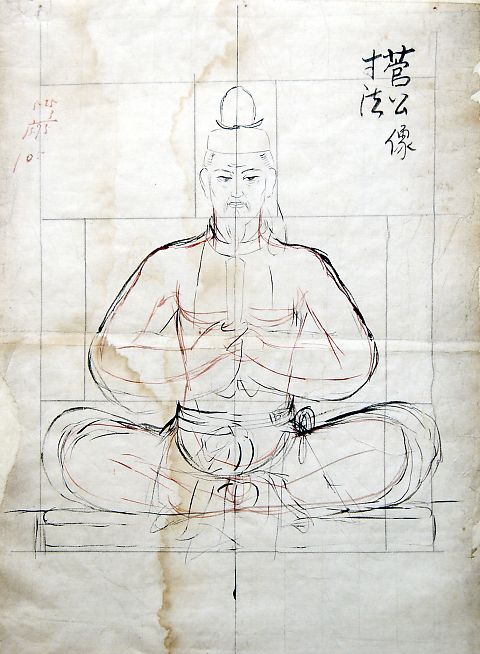 菅公像
寸法
10